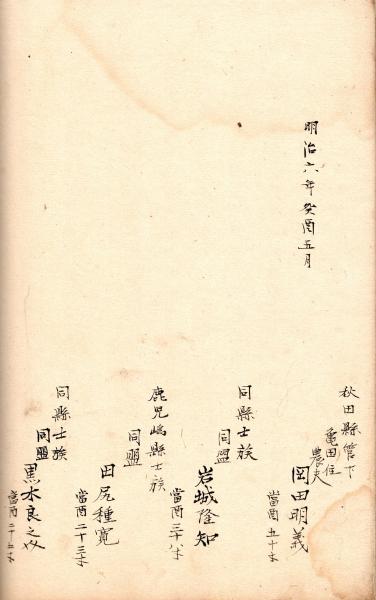 明治六年癸酉五月
秋田縣管下
亀田住
農夫
岡田明義
當酉五十才
同縣士族
同盟
岩城隆知
當酉三十八才
鹿児嶋縣士族
同盟
田尻種寛
當酉二十三才
同縣士族
同盟
黒木良之
當酉二十三才